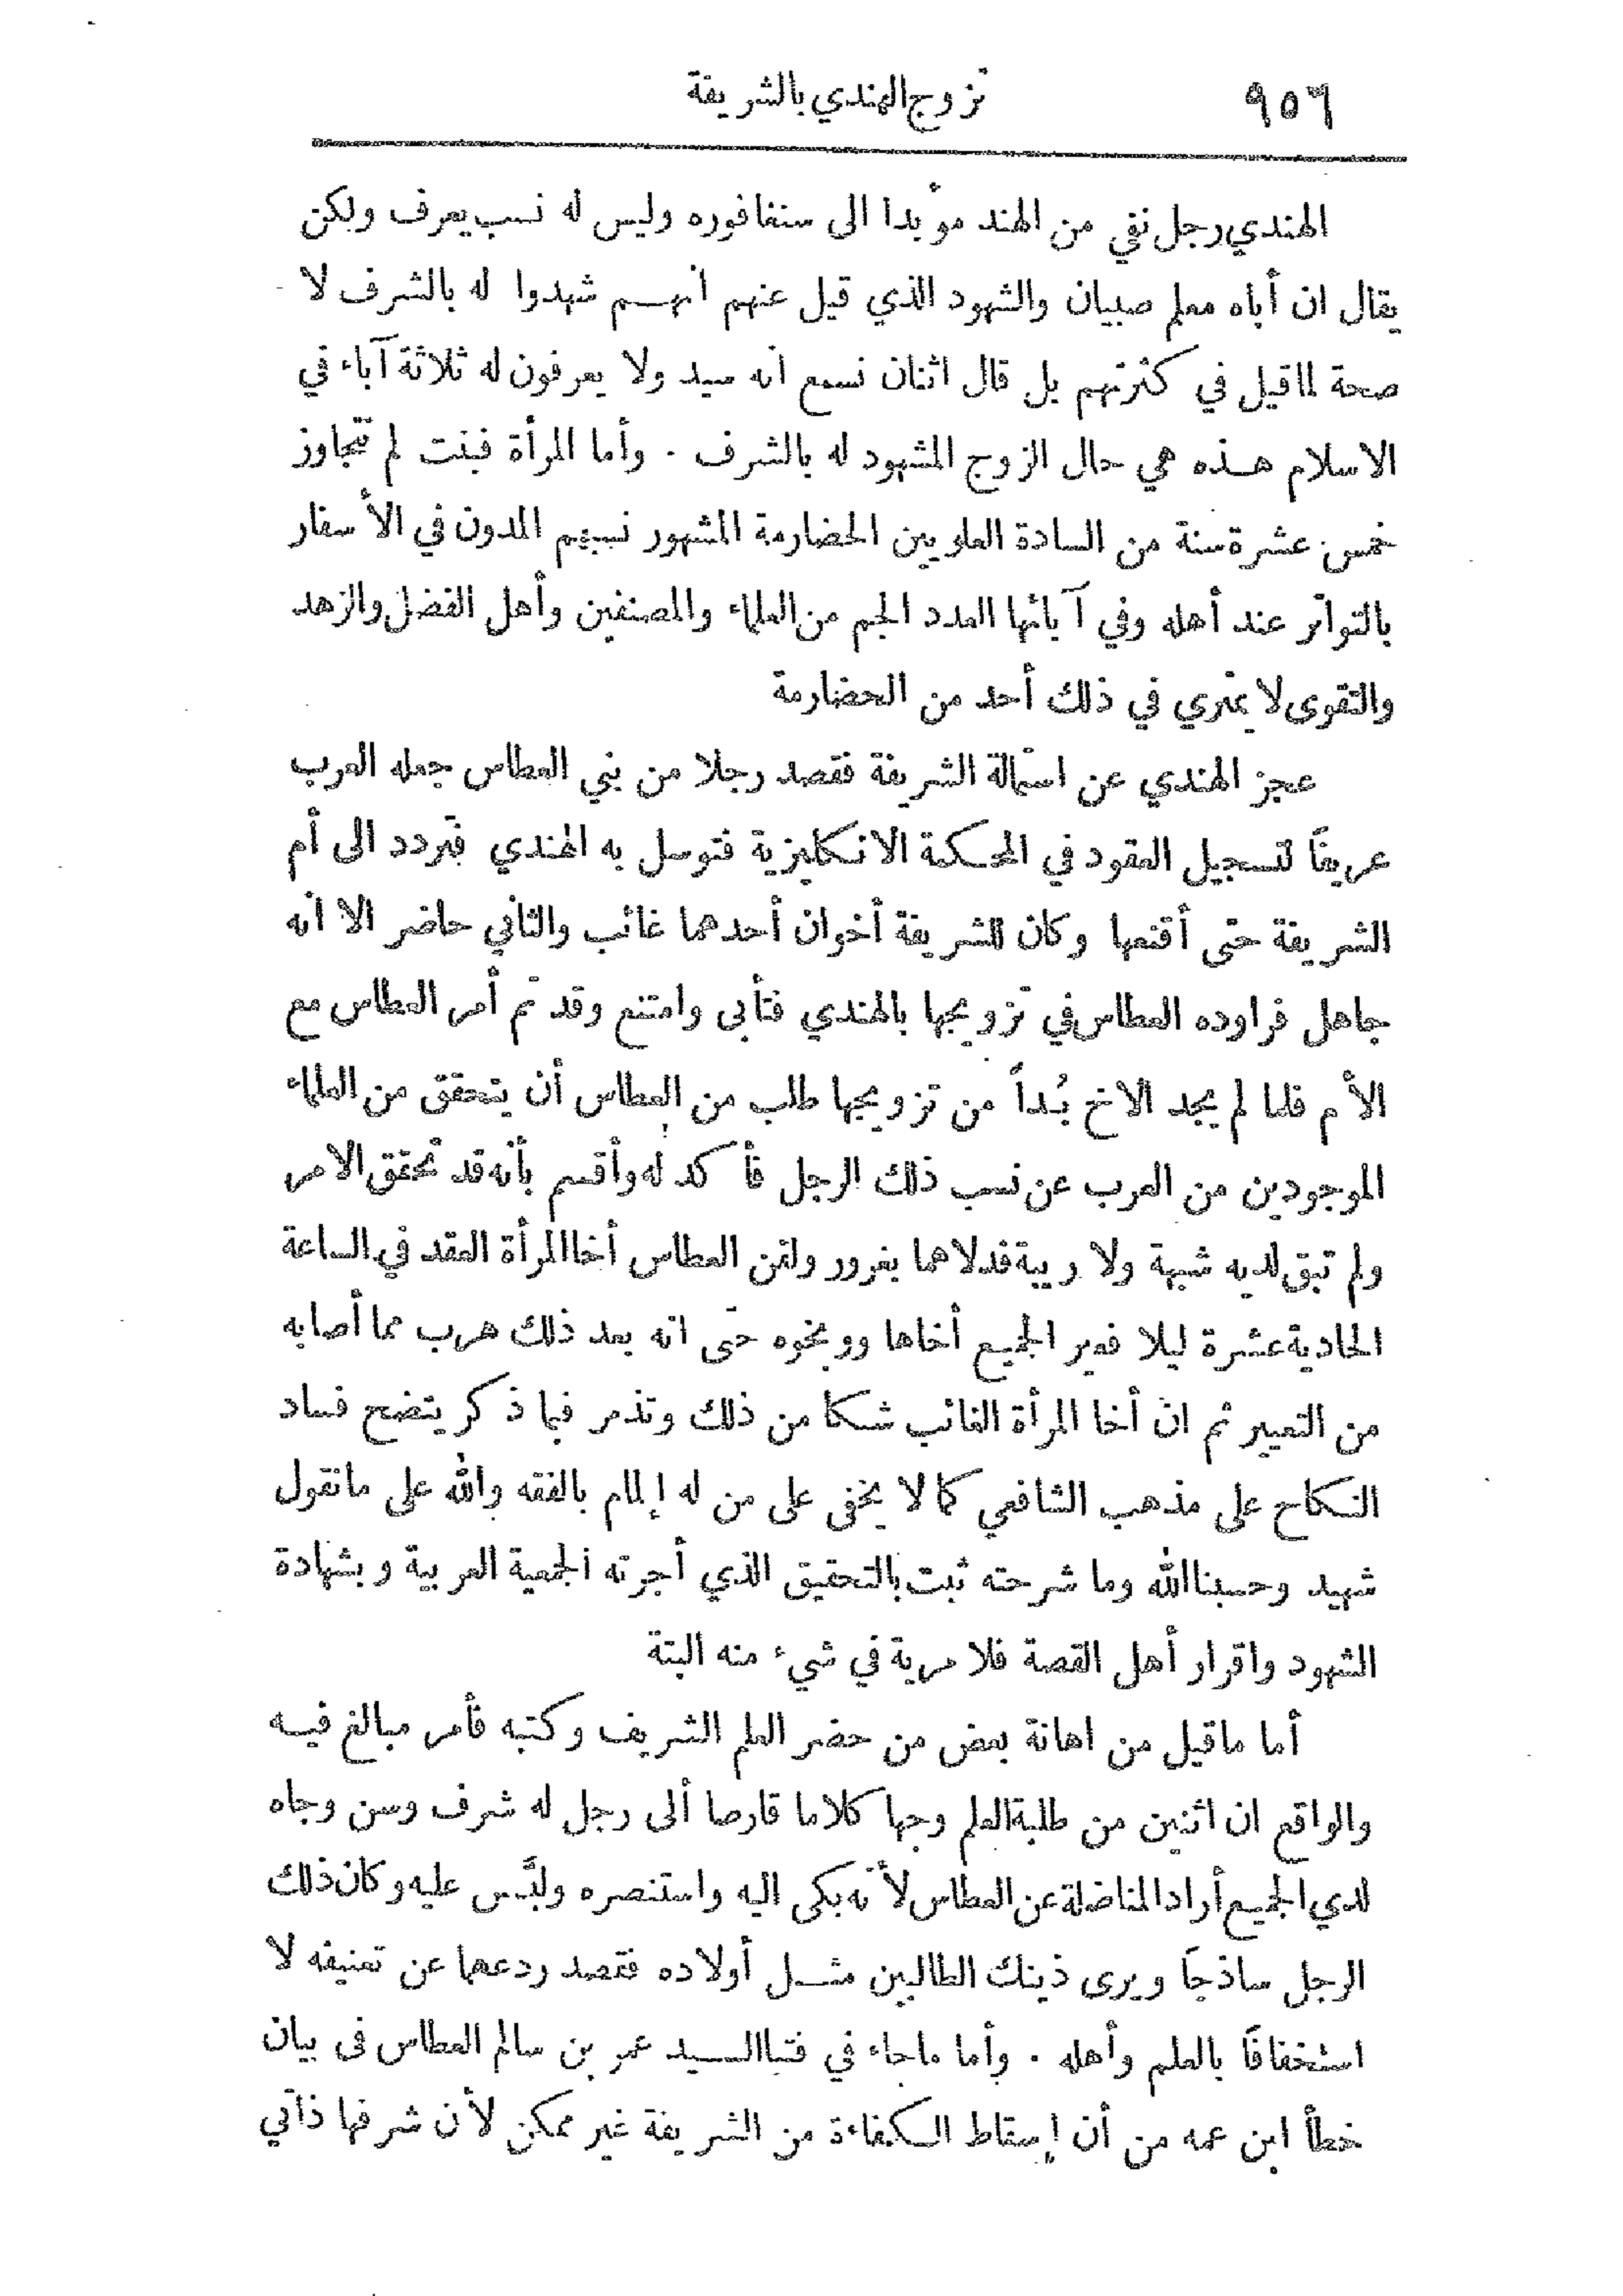 ٩٥٦
تزوج الهندي بالشريفة
الهندي رجل نفي من الهند مؤبدا الى سنغافوره وليس له نسب يعرف ولكن
يقال ان أباه معلم صبيان والشهود الذي قيل عنهم انهم شهدوا له بالشرف لا
صحة لما قيل في كثرتهم بل قال اثنان نسمع انه سيد ولا يعرفون له ثلاثة آباء في
الاسلام هذه هي حال الزوج المشهود له بالشرف . وأما المرأة فبنت لم تتجاوز
خمس عشرة سنة من السادة العلويين الحضارمة المشهور نسبهم المدون في الأسفار
بالتواتر عند أهله وفي آبائها العدد الجم من العلماء والمصنفين وأهل الفضل والزهد
والتقوى لا يمتري في ذلك أحد من الحضارمة
عجز الهندي عن استمالة الشريفة فقصد رجلا من بني العطاس جعله العرب
عريفًا لتسجيل العقود في المحكمة الانكليزية فتوسل به الهندي فتردد الى أم
الشريفة حتى أقنعها وكان للشريفة أخوان أحدهما غائب والثاني حاضر الا انه
جاهل فراوده العطاس في تزويجها بالهندي فتأبى وامتنع وقد تم أمر العطاس مع
الأم فلما لم يجد الاخ بُداً من تزويجها طلب من العطاس أن يتحقق من العلماء
الموجودين من العرب عن نسب ذلك الرجل فأكد له وأقسم بأنه قد تحقق الامر
ولم تبق لديه شبهة ولا ريبة فدلاهما بغرور ولقن العطاس أخا المرأة العقد في الساعة
الحادية عشرة ليلا فعير الجميع أخاها ووبخوه حتى انه بعد ذلك هرب مما أصابه
من التعيير ثم ان أخا المرأة الغائب شكا من ذلك وتذمر فبما ذكر يتضح فساد
النكاح على مذهب الشافعي كما لا يخفى على من له إلمام بالفقه والله على ما نقول
شهيد وحسبنا الله وما شرحته ثبت بالتحقيق الذي أجرته الجمعية العربية وبشهادة
الشهود واقرار أهل القصة فلا مرية في شيء منه البتة
أما ما قيل من اهانة بعض من حضر العلم الشريف وكتبه فأمر مبالغ فيه
والواقع ان اثنين من طلبة العلم وجها كلاما قارصا ألى رجل له شرف وسن وجاه
لدي الجميع أراد المناضلة عن العطاس لأنه بكى اليه واستنصره ولبَّس عليه وكان ذلك
الرجل ساذجًا ويرى ذينك الطالبين مثل أولاده فقصد ردعهما عن تعنيفه لا
استخفافًا بالعلم وأهله . وأما ما جاء في فتيا السيد عمر بن سالم العطاس فى بيان
خطأ ابن عمه من أن إسقاط الكفاءة من الشريفة غير ممكن لأن شرفها ذاتي